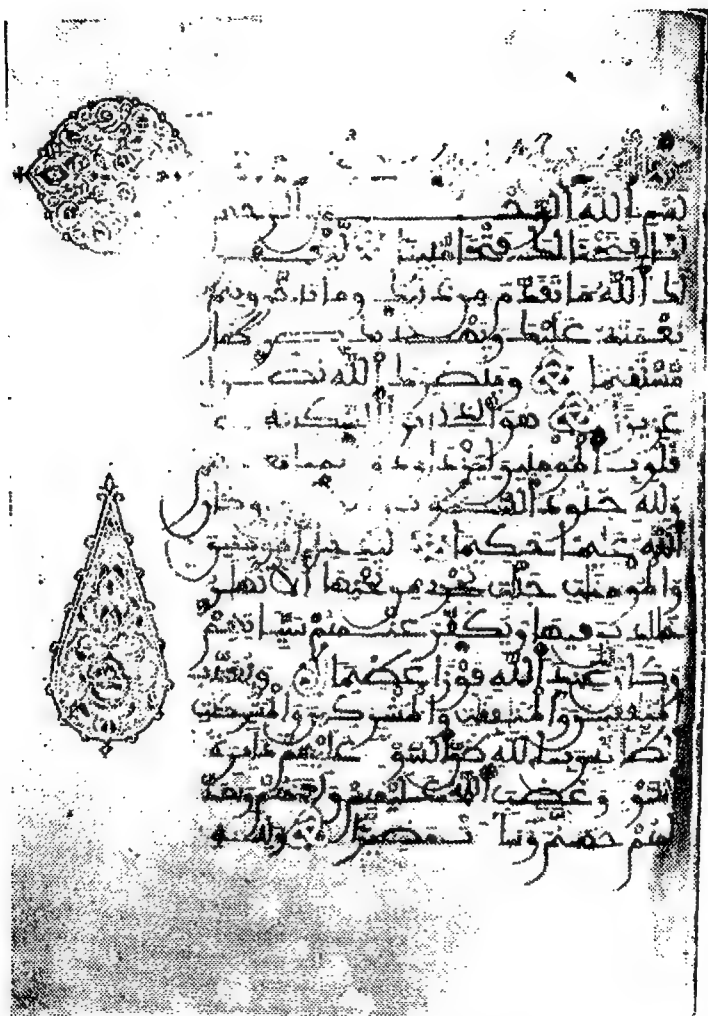 بسم الله الرحمن الرحيم
انا فتحنا لك فتحا مبينا ليغفر
لك الله ما تقدم من ذنبك وما تاخر ويتم
نعمته عليك ويهديك صراطا
مستقيما وينصرك الله نصرا
عزيزا هو الذي انزل السكينة في
قلوب المومنين ليزدادوا ايمانا مع
ولله جنود السموت وكان
الله عليما حكيما ليدخل المومنين
والمومنت جنت تجري من تحتها الانهر
خلدين فيها ويكفر عنهم سياتهم
وكان عند الله فوزا عظيما ويعذب
المنفقين والمنفقت والمشركين والمشركت
الظانين بالله ظن السوء عليهم دائرة
السوء وغضب الله عليهم ولعنهم واعد
لهم جهنم وساءت مصيرا ولله